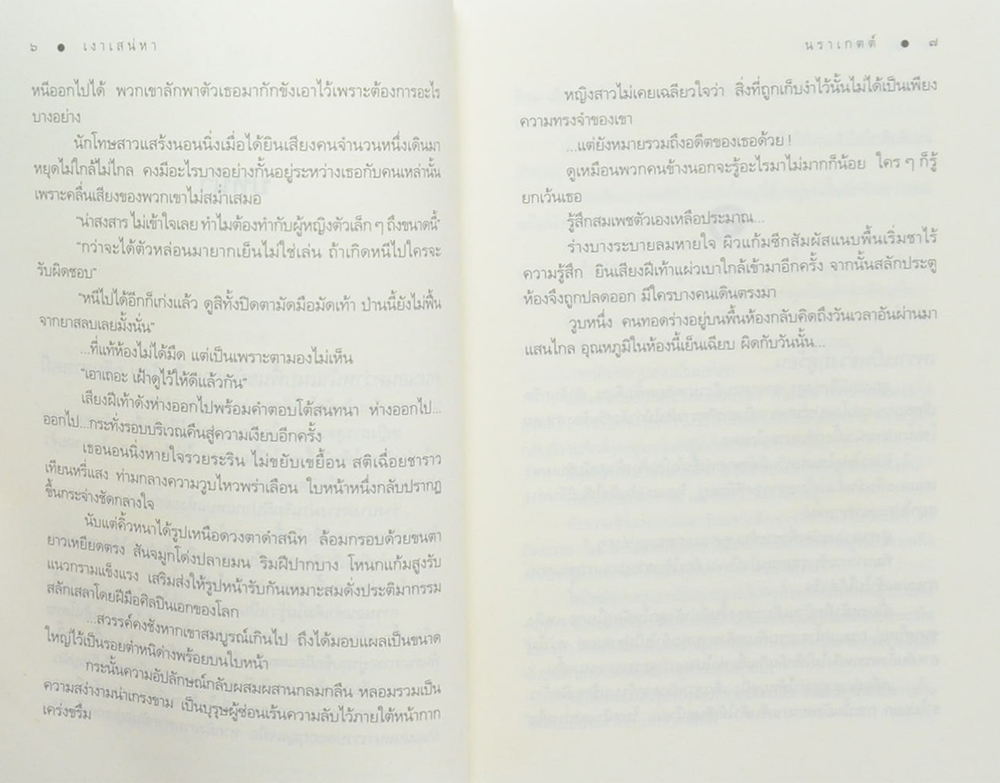 ๖ ● เงาเสน่หา
หนีออกไปได้ พวกเขาลักพาตัวเธอมากักขังเอาไว้เพราะต้องการอะไร
บางอย่าง
นักโทษสาวแสร้งนอนนิ่งเมื่อได้ยินเสียงคนจำนวนหนึ่งเดินมา
หยุดไม่ใกล้ไม่ไกล คงมีอะไรบางอย่างกั้นอยู่ระหว่างเธอกับคนเหล่านั้น
เพราะคลื่นเสียงของพวกเขาไม่สม่ำเสมอ
“น่าสงสาร ไม่เข้าใจเลย ทำไมต้องทำกับผู้หญิงตัวเล็ก ๆ ถึงขนาดนี้”
“กว่าจะได้ตัวหล่อนมายากเย็นไม่ใช่เล่น ถ้าเกิดหนีไปใครจะ
รับผิดชอบ”
“หนีไปได้อีกก็เก่งแล้ว ดูสิทั้งปิดตามัดมือมัดเท้า ป่านนี้ยังไม่ฟื้น
จากยาสลบเลยมั้งนั่น”
...ที่แท้ห้องไม่ได้มืด แต่เป็นเพราะตามองไม่เห็น
“เอาเถอะ เฝ้าดูไว้ให้ดีแล้วกัน”
เสียงฝีเท้าดังห่างออกไปพร้อมคำตอบโต้สนทนา ห่างออกไป...
ออกไป...กระทั่งรอบบริเวณคืนสู่ความเงียบอีกครั้ง
เธอนอนนิ่งหายใจรวยระริน ไม่ขยับเขยื้อน สติเฉื่อยชาราว
เทียนหรี่แสง ท่ามกลางความวูบไหวพร่าเลือน ใบหน้าหนึ่งกลับปรากฏ
ขึ้นกระจ่างชัดกลางใจ
นับแต่คิ้วหนาได้รูปเหนือดวงตาดำสนิท ล้อมกรอบด้วยขนตา
ยาวเหยียดตรง สันจมูกโด่งปลายมน ริมฝีปากบาง โหนกแก้มสูงรับ
แนวกรามแข็งแรง เสริมส่งให้รูปหน้ารับกันเหมาะสมดั่งประติมากรรม
สลักเสลาโดยฝีมือศิลปินเอกของโลก
...สวรรค์คงชังหากเขาสมบูรณ์เกินไป ถึงได้มอบแผลเป็นขนาด
ใหญ่ไว้เป็นรอยตำหนิด่างพร้อยบนใบหน้า
กระนั้นความอัปลักษณ์กลับผสมผสานกลมกลืน หลอมรวมเป็น
ความสง่างามน่าเกรงขาม เป็นบุรุษผู้ซ่อนเร้นความลับไว้ภายใต้หน้ากาก
เคร่งขรึม
นราเกตต์ ● ๗
หญิงสาวไม่เคยเฉลียวใจว่า สิ่งที่ถูกเก็บงำไว้นั้นไม่ได้เป็นเพียง
ความทรงจำของเขา
...แต่ยังหมายรวมถึงอดีตของเธอด้วย !
ดูเหมือนพวกคนข้างนอกจะรู้อะไรมาไม่มากก็น้อย ใคร ๆ ก็รู้
ยกเว้นเธอ
รู้สึกสมเพชตัวเองเหลือประมาณ...
ร่างบางระบายลมหายใจ ผิวแก้มซีกสัมผัสแนบพื้นเริ่มชาไร้
ความรู้สึก ยินเสียงฝีเท้าแผ่วเบาใกล้เข้ามาอีกครั้ง จากนั้นสลักประตู
ห้องจึงถูกปลดออก มีใครบางคนเดินตรงมา
วูบหนึ่ง คนทอดร่างอยู่บนพื้นห้องกลับคิดถึงวันเวลาอันผ่านมา
แสนไกล อุณหภูมิในห้องนี้เย็นเฉียบ ผิดกับวันนั้น...